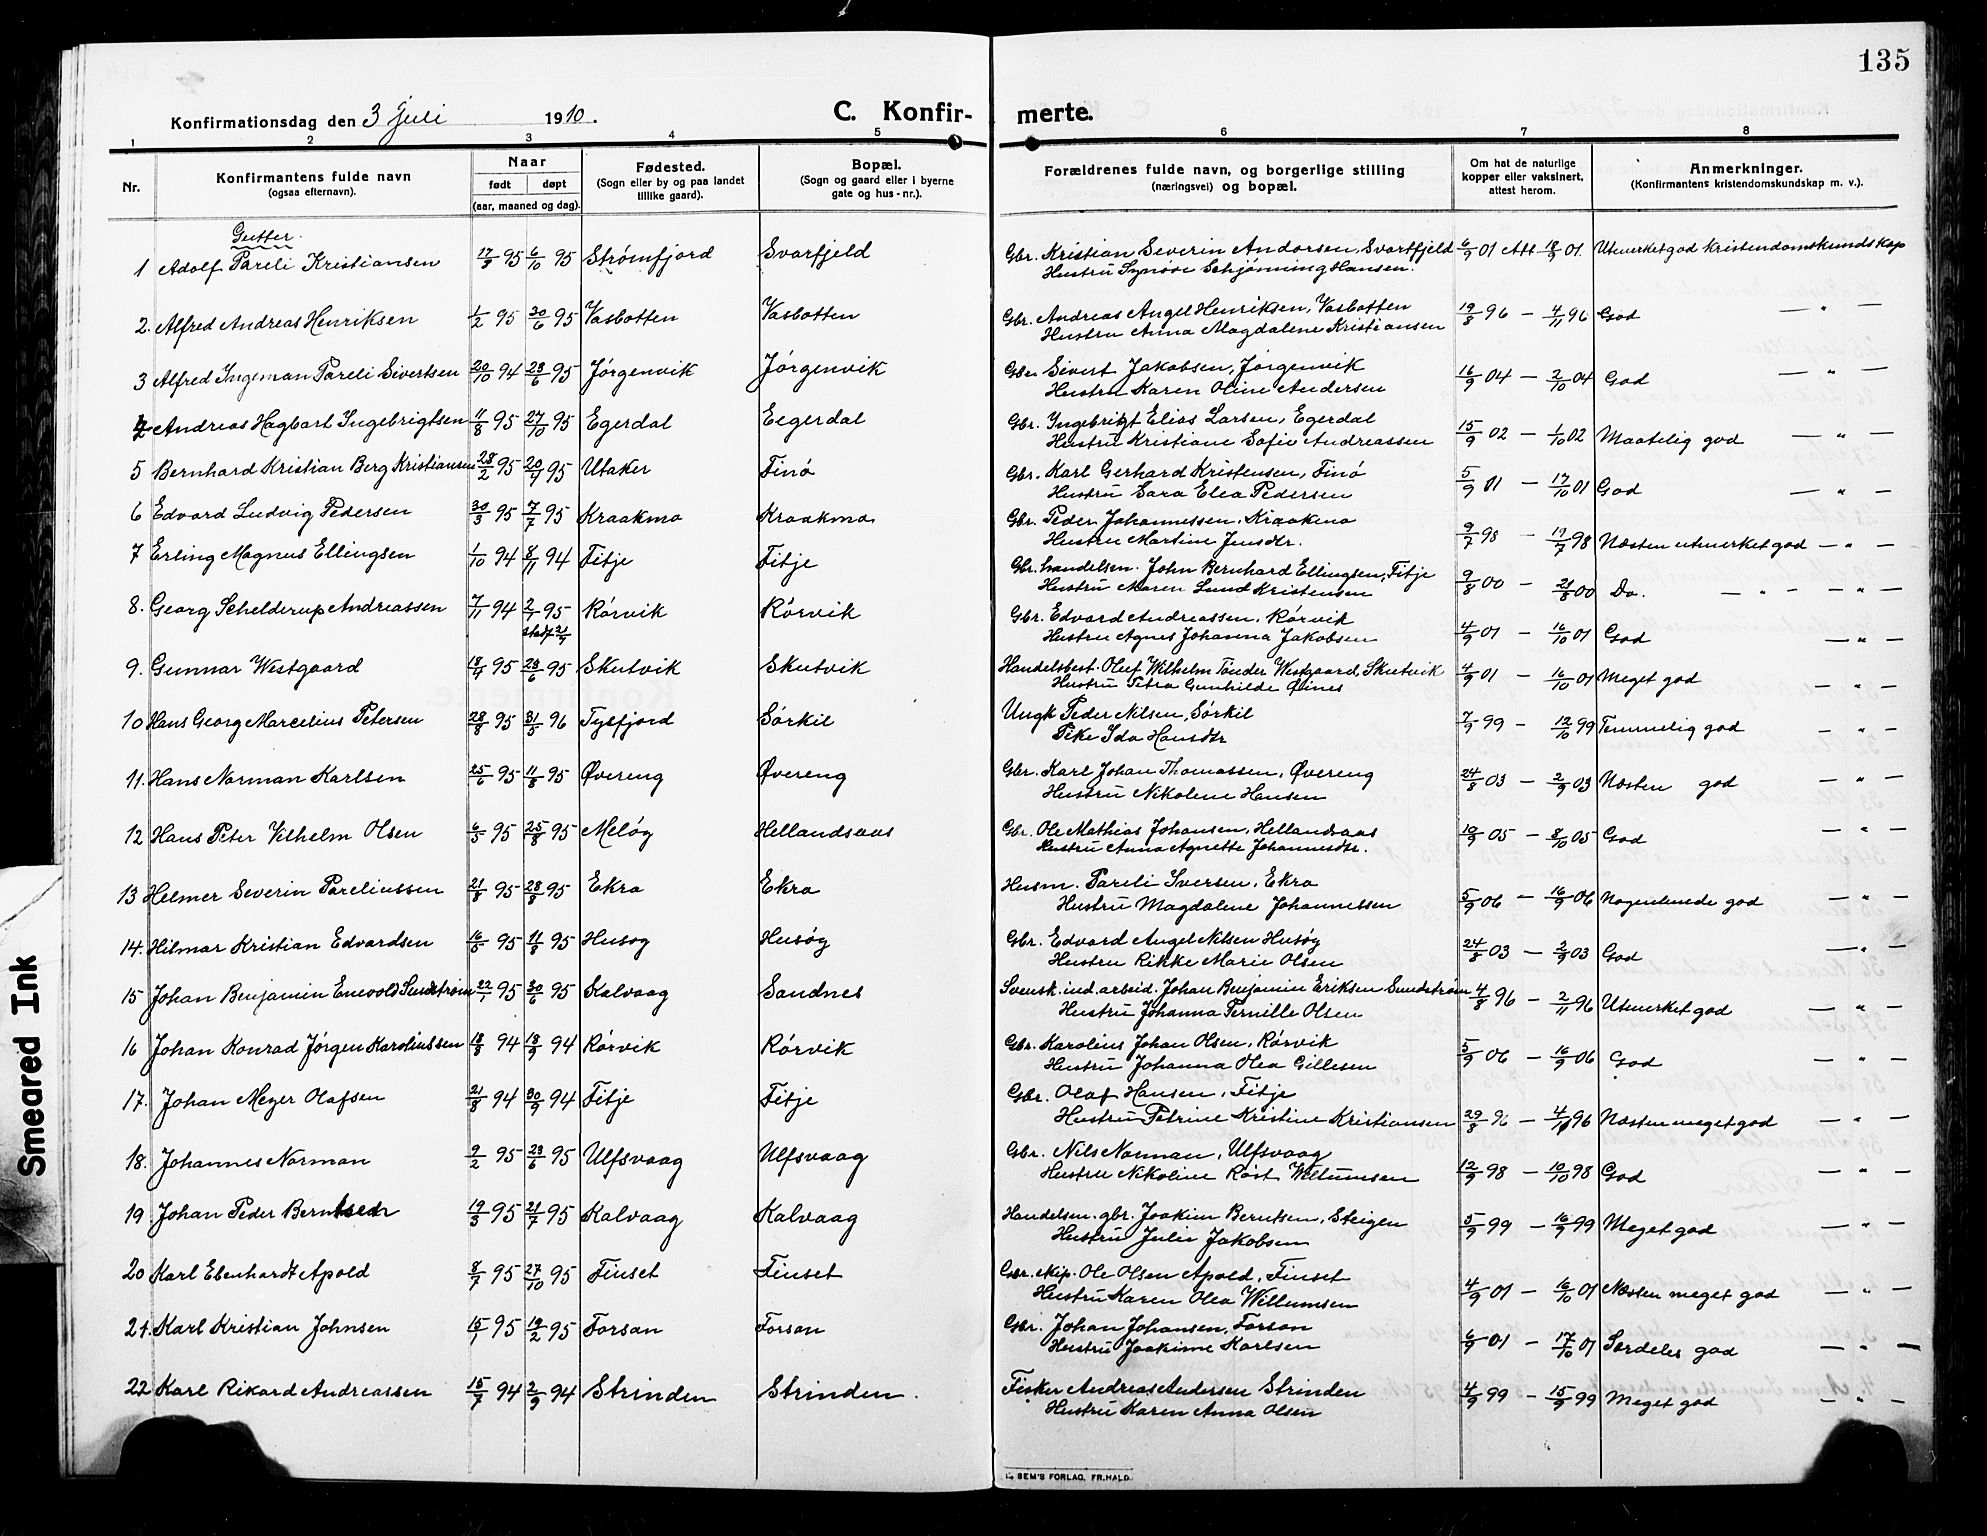 135
Konfirmationsdag den 3 Juli 1910.
C. Konfirmerte.
1 2 3 4 5 6 7 8
Nr.
Konfirmantens fulde navn
(ogsaa efternavn).
Naar
født døpt
(aar, maaned og dag).
Fødested.
(Sogn eller by og paa landet
tillike gaard).
Bopæl.
(Sogn og gaard eller i byerne
gate og hus-nr.).
Forældrenes fulde navn, og borgerlige stilling
(næringsvei) og bopæl.
Om hat de naturlige
kopper eller vaksinert,
attest herom.
Anmerkninger.
(Konfirmantens kristendomskundskap m. v.).
Gutter.
1 Adolf Pareli Kristiansen 17/9 95 6/10 95 Strømfjord Svarfjeld Gbr. Kristian Severin Andorsen, Svartfjeld 6/9 01 Att 18/9 01. Utmerket god kristendomskundskap
Hustru Synøve Schjønning Hansen.
2. Alfred Andreas Henriksen 1/2 95 30/6 95 Vasbotten Vasbotten Gbr. Andreas Angel Henriksen, Vasbotten 19/8 96 — 4/11 96 God — " —
Hustru Anna Magdalene Kristiansen
3 Alfred Ingeman Pareli Sivertsen 20/10 94 23/6 95 Jørgenvik Jørgenvik Gbr. Sivert Jakobsen, Jørgenvik 16/9 04 — 2/10 04 God — " —
Hustru Karen Oline Andersen
4 Andreas Hagbart Ingebrigtsen 11/8 95 27/10 95 Egerdal Eegerdal Gbr. Ingebrigt Elias Larsen, Egerdal 15/9 02 — 1/10 02 Maatelig god — " —
Hustru Kristiane Sofie Andreassen
5 Bernhard Kristian Berg Kristiansen 28/2 95 20/9 95 Utaker Finø Gbr. Karl Gerhard Kristensen, Finø 5/9 01 — 17/10 01 God — " —
Hustru Sara Elea Pedersen
6 Edvard Ludvig Pedersen 30/3 95 7/7 95 Kraakmo Kraakmo Gbr. Peder Johannessen, Kraakmo 9/7 98 — 19/7 98 Næsten utmerket god — " —
Hustru Martine Jensdtr.
7 Erling Magnus Ellingsen 1/10 94 8/11 94 Fitje Fitje Gbr. handelsm. John Bernhard Ellingsen, Fitje 9/8 00 — 21/8 00 Do. — " — — " —
Hustru Maren Lund Kristensen
8. Georg Schelderup Andreassen 7/11 94 2/7 95 Rørvik Rørvik Gbr. Edvard Andreassen, Rørvik 4/9 01 — 16/10 01 God — " —
Hustru Agnes Johanna Jakobsen
9. Gunnar Westgaard 18/4 95 23/6 95 Skutvik Skutvik Handelsbest. Oluf Wilhelm Tønder Westgaard, Skutvik 4/9 01 — 16/10 01 Meget god — " —
Hustru Petra Gunhilde Øines
10 Hans Georg Marcelius Petersen 28/8 95 31/5 96 Tysfjord Sørkil Ungk Peder Nilsen, Sørkil 7/9 99 — 12/10 99 Temmelig god — " —
Pike Ida Hansdtr
11. Hans Norman Karlsen 25/6 95 11/8 95 Øvereng Øvereng Gbr. Karl Johan Thomassen, Øvereng 24/8 03 — 2/9 03 Næsten god — " —
Hustru Nikoline Hansen
12 Hans Peter Vilhelm Olsen 6/5 95 25/8 95 Meløy Hellandsaas Gbr. Ole Mathias Johansen, Hellandsaas 10/9 05 — 8/10 05 God — " —
Hustru Anna Agnette Johannesdtr.
13 Helmer Severin Pareliussen 21/8 95 28/8 95 Ekra Ekra Husm. Pareli Iversen, Ekra 5/9 06 — 16/9 06 Nogenlunde god — " —
Hustru Magdalene Johannessen
14. Hilmar Kristian Edvardsen 16/5 95 11/8 95 Husøy Husøy Gbr. Edvard Angel Nilsen Husøy 24/8 03 — 2/9 03 God — " —
Hustru Rikke Marie Olsen
15 Johan Benjamin Enevold Sundstrøm 22/1 95 30/6 95 Kalvaag Sandnes Svensk. ind. arbeid. Johan Benjamin Eriksen Sundstrøm 4/8 96 — 2/11 96 Utmerket god — " —
Hustru Johanna Pernille Olsen
16 Johan Konrad Jørgen Karoliussen 18/8 94 18/9 94 Rørvik Rørvik Gbr. Karolius Johan Olsen, Rørvik 5/9 06 — 16/9 06 God — " —
Hustru Johanna Olea Gillesen
17. Johan Meyer Olafsen 21/8 94 30/9 94 Fitje Fitje Gbr. Olaf Hansen, Fitje 29/8 96 — 96 Næsten meget god — " —
Hustru Petrine Kristine Kristiansen
18. Johannes Norman 9/2 95 23/6 95 Ulfsvaag Ulfsvaag Gbr. Nils Norman, Ulfsvaag 12/9 98 — 10/10 98 God — " —
Hustru Nikoline Røst Willumsen
19 Johan Peder Berntsen 19/3 95 21/7 95 Kalvaag Kalvaag Handelsm. gbr. Joakim Berntsen, Steigen 5/9 99 — 16/9 99 Meget god — " —
Hustru Julie Jakobsen
20 Karl Ebenhardt Apold 8/7 95 27/10 95 Finset Finset Gbr. skip. Ole Olsen Apold, Finset 4/9 01 — 16/10 01 Næsten meget god — " —
Hustru Karen Olea Willumsen
21. Karl Kristian Johnsen 15/1 95 19/2 95 Forsan Forsan Gbr. Johan Johansen, Forsan 6/9 01 — 17/10 01 Særdeles god — " —
Hustru Joakime Karlsen
22 Karl Rikard Andreassen 15/7 94 2/9 94 Strinden Strinden. Fisker Andreas Andersen Strinden 4/9 99 — 15/9 99 Meget god — " —
Hustru Karen Anna Olsen
SEM'S FORLAG, FR. HALD.
Smeared Ink